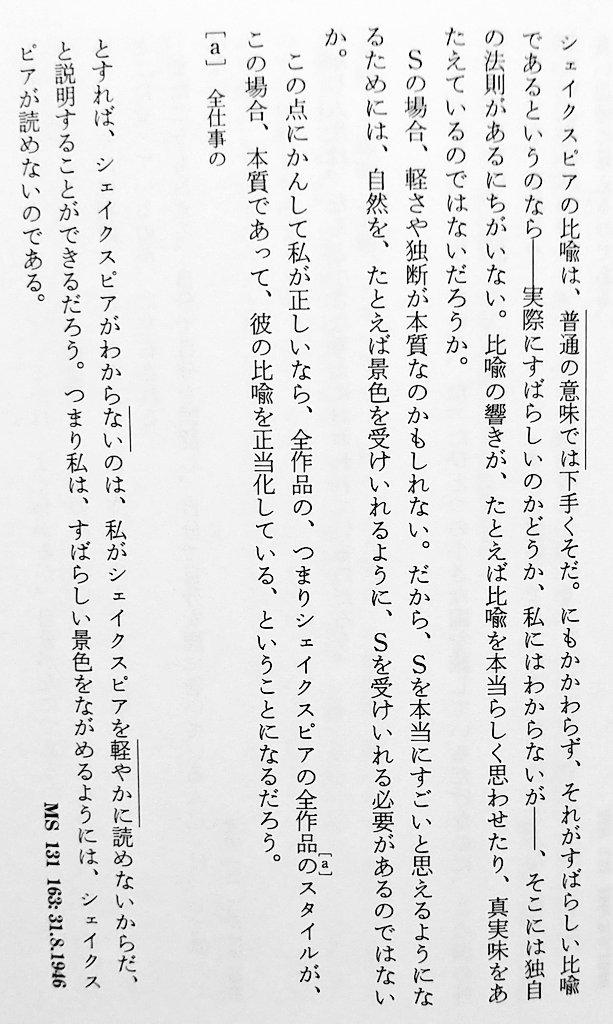 シェイクスピアの比喩は、普通の意味では下手くそだ。にもかかわらず、それがすばらしい比喩
であるというのなら――実際にすばらしいのかどうか、私にはわからないが――、そこには独自
の法則があるにちがいない。比喩の響きが、たとえば比喩を本当らしく思わせたり、真実味をあ
たえているのではないだろうか。
Sの場合、軽さや独断が本質なのかもしれない。だから、Sを本当にすごいと思えるようにな
るためには、自然を、たとえば景色を受けいれるように、Sを受けいれる必要があるのではない
か。
この点にかんして私が正しいなら、全作品の、つまりシェイクスピアの全作品の[a]スタイルが、
この場合、本質であって、彼の比喩を正当化している、ということになるだろう。
[a] 全仕事の
とすれば、シェイクスピアがわからないのは、私がシェイクスピアを軽やかに読めないからだ、
と説明することができるだろう。つまり私は、すばらしい景色をながめるようには、シェイクス
ピアが読めないのである。
MS 131 163: 31.8.1946